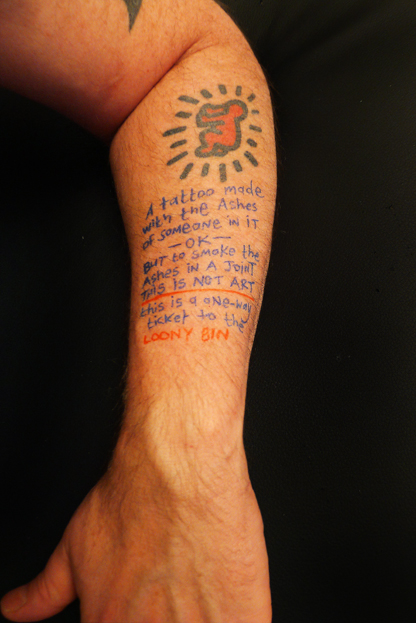 A tattoo made
with the Ashes
of someone in it
— OK —
But to smoke the
Ashes in A JOINT
This is NOT ART
this is a one-way
ticket to the
LOONY BIN